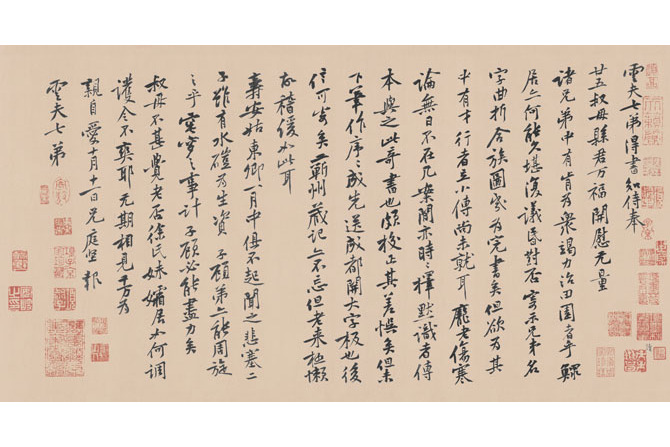 雲夫七弟得書知侍奉
廿五叔母縣君萬福開慰無量
諸兄弟中有肯為眾竭力治田園者乎鰥
居亦何能久堪復議昏對否寄示兄弟名
字曲折合族圖家為完書矣但欲為其
中有才行者立小傳尚未就耳龐老傷寒
論無日不在几案間亦時擇默識者傳
本與之此奇書也頗校正其差誤矣但未
下筆作序序成先送成都開大字板也後
信可寄矣蘄州藏記亦不忘但老來極懶
故稽緩如此耳
壽安姑東卿一月中俱不起聞之悲塞二
子雖有水磑為生資子顧弟亦能周旋
之乎窀穸之事計子顧必能盡力矣
叔母不甚覺老否徐氏妹孀居如何調
護令不爽耶元期相見千萬為
親自愛十月十一日兄庭堅報
雲夫七弟